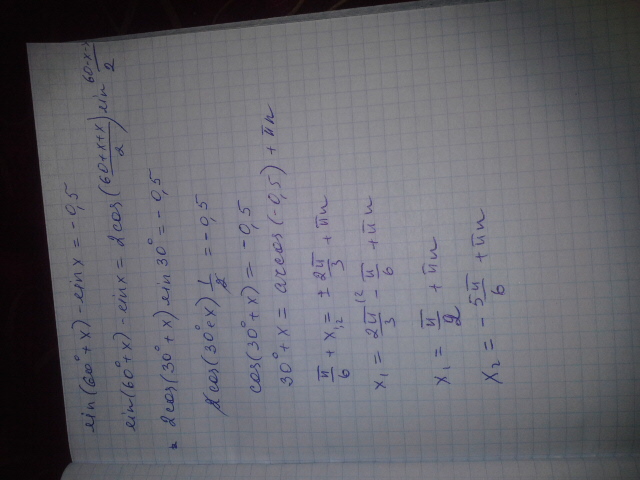 sin(60°+x) - sin x = -0,5
sin(60°+x) - sin x = 2cos(60+x+x)/2) sin 60+x-x/2
2cos(30°+x) sin 30° = -0,5
2cos(30°+x) 1/2 = -0,5
cos(30°+x) = -0,5
30°+x = arccos(-0,5) + πn
π/6 + x₁,₂ = ± 2π/3 + πn
x₁ = 2π/3 - π/6 + πn
x₁ = π/2 + πn
x₂ = - 5π/6 + πn